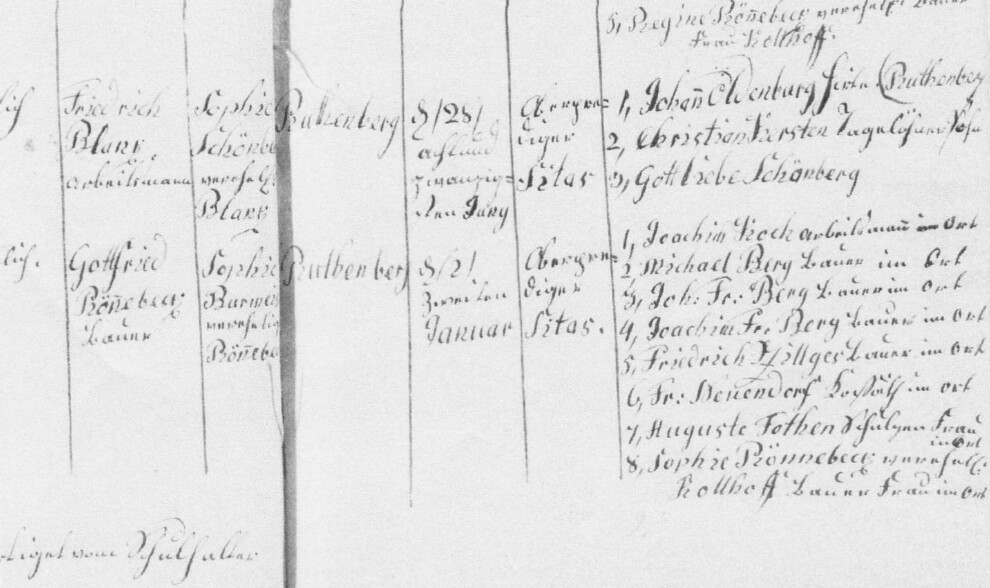 5, Regine Rönnebeck verehel. Bauer
Frau Kollhoff.
lich
Friedrich
Blanz
Arbeitsmann
Sophie
Schönbe
verehel.
Blanz
Ruthenberg
8/28/
acht und
zwanzig=
sten Jung
Oberpre=
diger
Sitas
1, Johann Oldenburg Hirte Ruthenberg
2, Christian Kersten Tagelöhner Sohn
3, Gottliebe Schönberg
lich.
Gottfried
Rönnebeck
Bauer
Sophie
Barmes
verehelig
Rönnebe
Ruthenberg
8/2/
Zweiten
Januar
Oberpre=
diger
Sitas.
1, Joachim Koch Arbeitsmann im Ort
2, Michael Berg Bauer im Ort
3, Joh: Fr: Berg Bauer im Ort
4, Joachim Fr: Berg Bauer im Ort
5, Friedrich Zillges Bauer im Ort
6, Fr: Neuendorf Kossäth im Ort
7, Auguste Fothen Schulzen Frau
im Ort
8, Sophie Rönnebeck verehel.
Kollhoff Bauer Frau im Ort
tiget vom Schulhalter